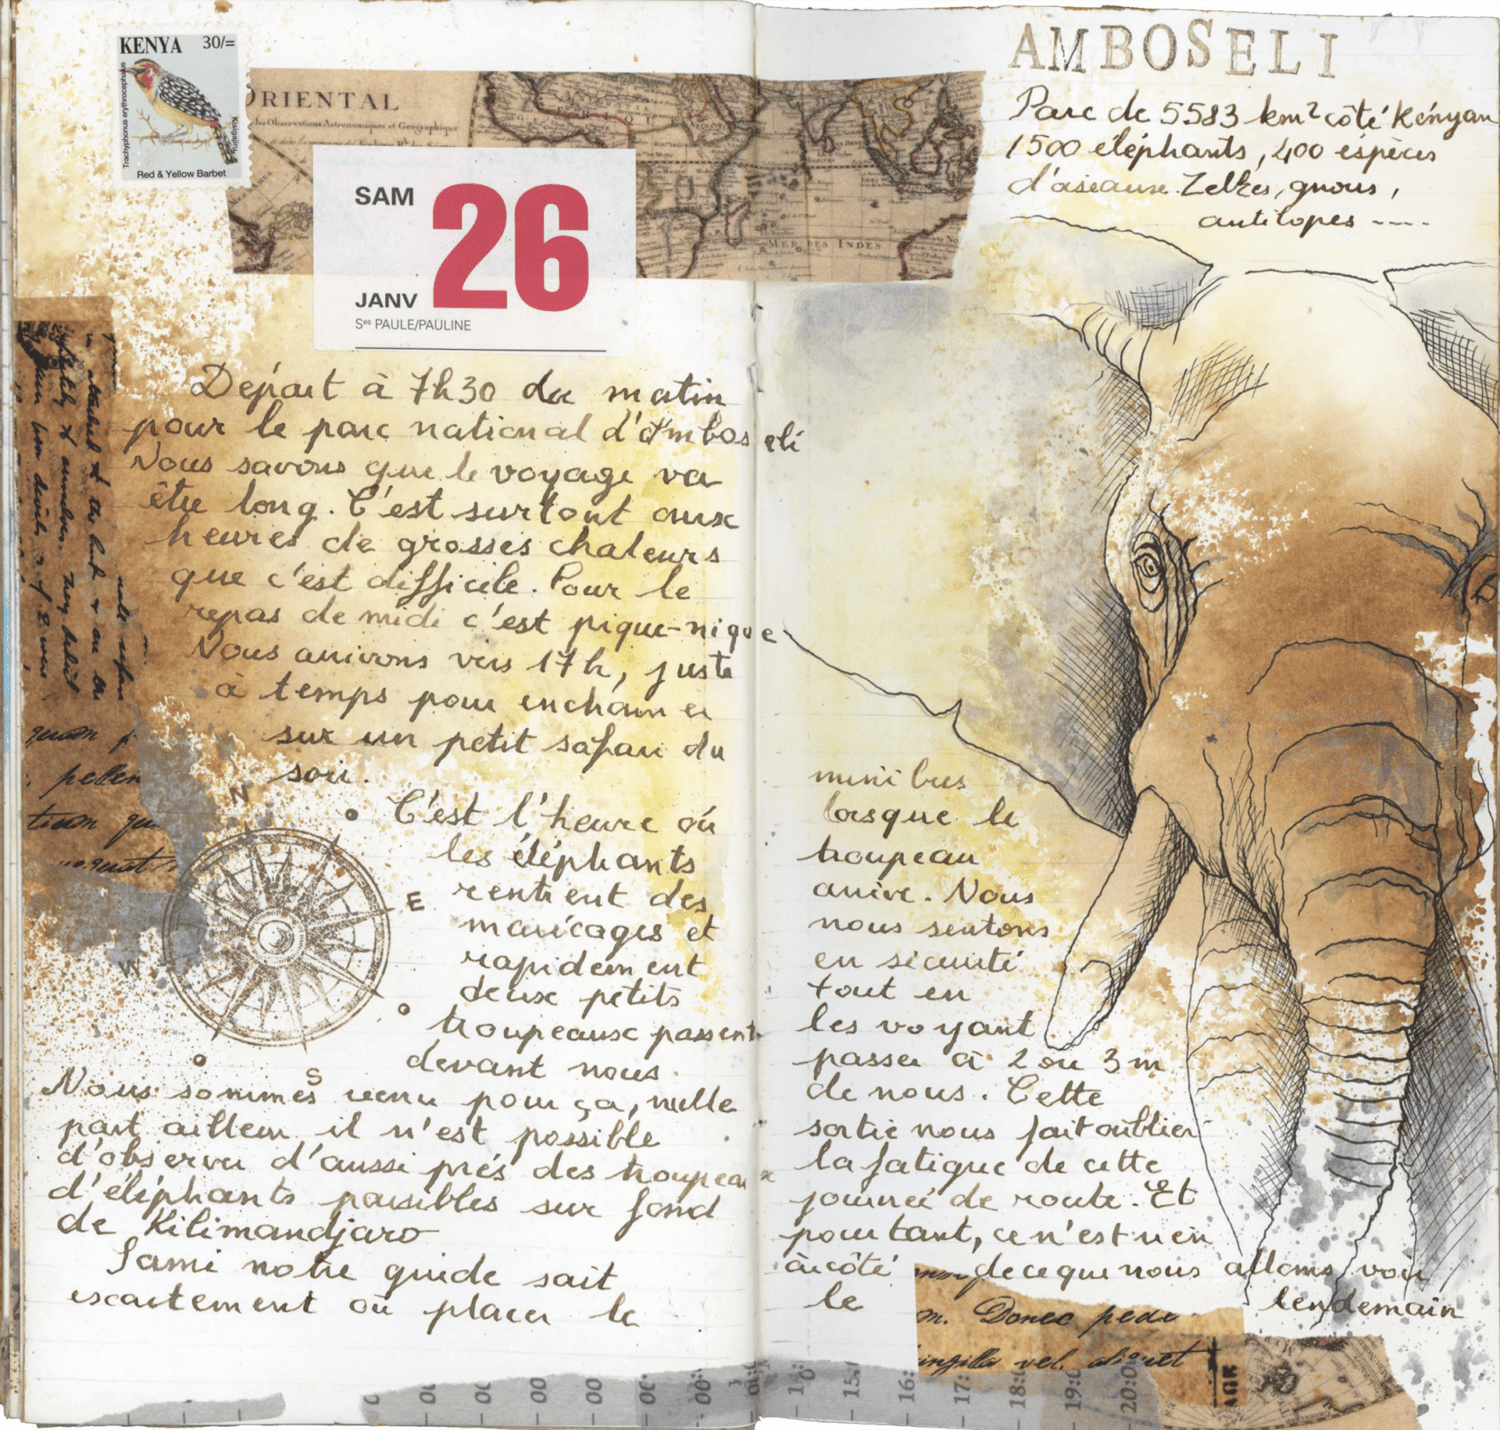 KENYA 30/=
Trachyphonus erythrocephalus
Red & Yellow Barbet
ORIENTAL
MER DES INDES
SAM 26
JANV
Ses PAULE/PAULINE
Départ à 7h30 du matin
pour le parc national d'Amboseli
Nous savons que le voyage va
être long. C'est surtout aux
heures de grosses chaleurs
que c'est difficile. Pour le
repas de midi c'est pique-nique
Nous arrivons vers 17h, juste
à temps pour enchaîner
sur un petit safari du
soir.
C'est l'heure où
les éléphants
rentrent des
marécages et
rapidement
deux petits
troupeaux passent
devant nous.
N
E
S
W
Nous sommes venu pour ça, nulle
part ailleur il n'est possible
d'observer d'aussi prés des troupeaux
d'eléphants paisibles sur fond
de Kilimandjaro
Sami notre guide sait
exactement où placer le
AMBOSELI
Parc de 5583 km² côté Kényan
1500 éléphants, 400 espèces
d'oiseaux. Zèbres, gnous,
antilopes ----
mini bus
lorsque le
troupeau
arrive. Nous
nous sentons
en sécurité
tout en
les voyant
passer à 2 ou 3 m
de nous. Cette
sortie nous fait oublier
la fatigue de cette
journée de route. Et
pourtant, ce n'est rien
à côté de ce que nous allons voir
le lendemain
m. Donec pede
fringilla vel, aliquet
15:
16:
17:
18:
19:0
20:00
AGR